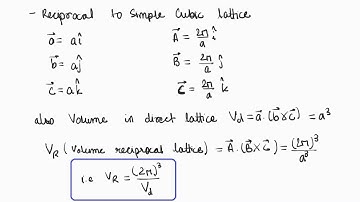 - Reciprocal to Simple Cubic lattice
a⃗ = a î    A⃗ = 2π/a î
b⃗ = a ĵ    B⃗ = 2π/a ĵ
c⃗ = a k̂    C⃗ = 2π/a k̂
also Volume in direct lattice V_d = a⃗ . (b⃗ × c⃗) = a³
V_R (Volume reciprocal lattice) = A⃗ . (B⃗ × C⃗) = (2π)³/a³
i.e V_R = (2π)³/V_d